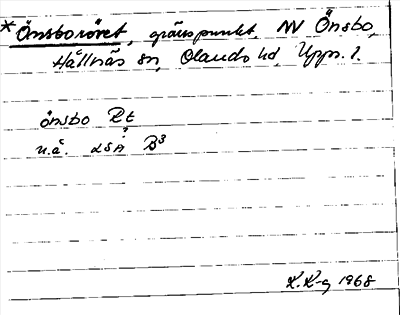 *Önsboröret, gränspunkt, NV Önsbo,
Hållnäs sn, Olands hd, Upps. l.
önsbo Rt
u.å. LSA B3
K.K-g 1968